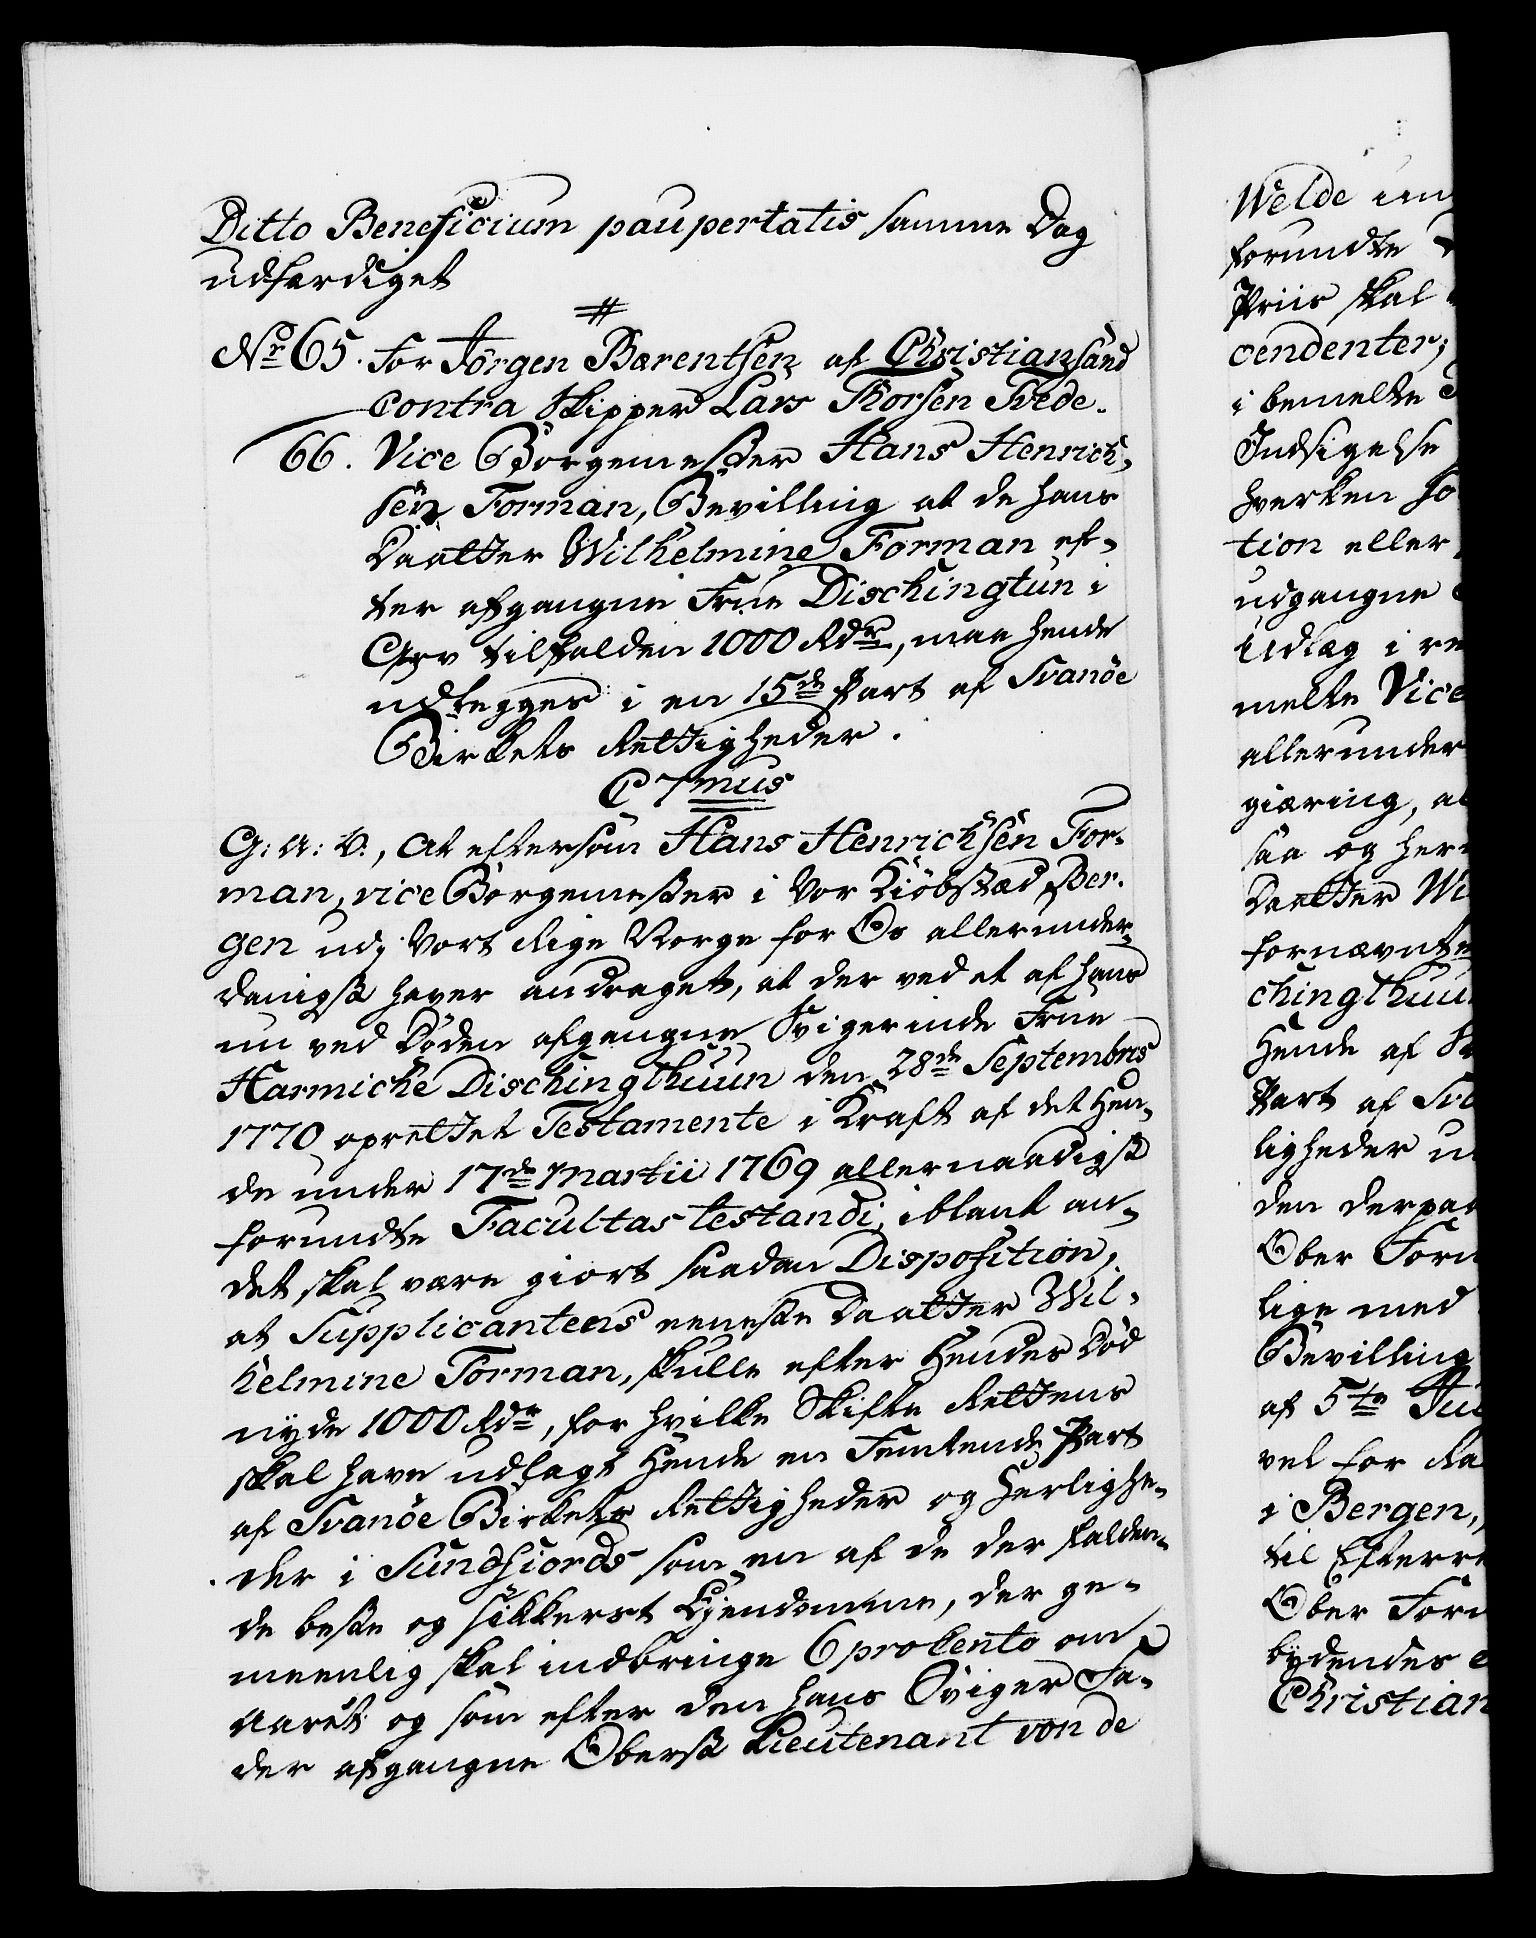 Ditto Beneficium paupertatis samme Dag
udfærdiget
#
No 65. For Jörgen Bærentsen af Christiansand
contra Skipper Lars Thorsen Tvede.
66. Vice Borgemester Hans Henrich-
sen Forman, Bevilling at de hans
Daatter Wilhelmine Forman ef-
ter afgangne Frue Dischingtun i
Arv tilfalden 1000 Rdr, maa hende
udlegges i en 15de Part af Svanöe
Birkets Rettigheder.
C 7mus
G: A: V:, At eftersom Hans Henrichsen For-
man, vice Borgemester i Vor Kiöbstæd Ber-
gen udj Vort Rige Norge for Os allerunder-
danigst haver andraget, at der ved et af hans
nu ved Döden afgangne Svigerinde Frue
Harmiche Dischingthuun den 28de Septembris
1770 oprettet Testamente i Kraft af det Hen-
de under 17de Martii 1769 allernaadigst
forundte Facultas testandi, iblant an-
det skal være giort saadan Disposition,
at Supplicantens eeneste Daatter Wil-
helmine Forman, skulle efter Hendes Död
nyde 1000 Rdr, for hvilke Skifte Rettens
skal have udlagt Hende en Femtende Part
af Svanöe Birkets Rettigheder og Herlighe-
der i Sundfiords som en af de der falden-
de beste og sikkerst Ejendomme, der ge-
meenlig skal indbringe 6 procento om
Aaret og som efter den hans Sviger Fa-
der afgangne Oberst Lieutenant von de
Welde
forundte
Priis skal
cendenter;
i bemelte
Indsigelse
hverken
tion eller
udgangne
Udlæg i
melte Vice
allerunder
giæring,
saa og
Daatter Wi
fornævnte
chingthuu
Hende af
Part af
ligheder
den derpaa
Ober
lige med
Bevilling
af 5te
vel for
i Bergen,
til
Ober
bydendes
Christian